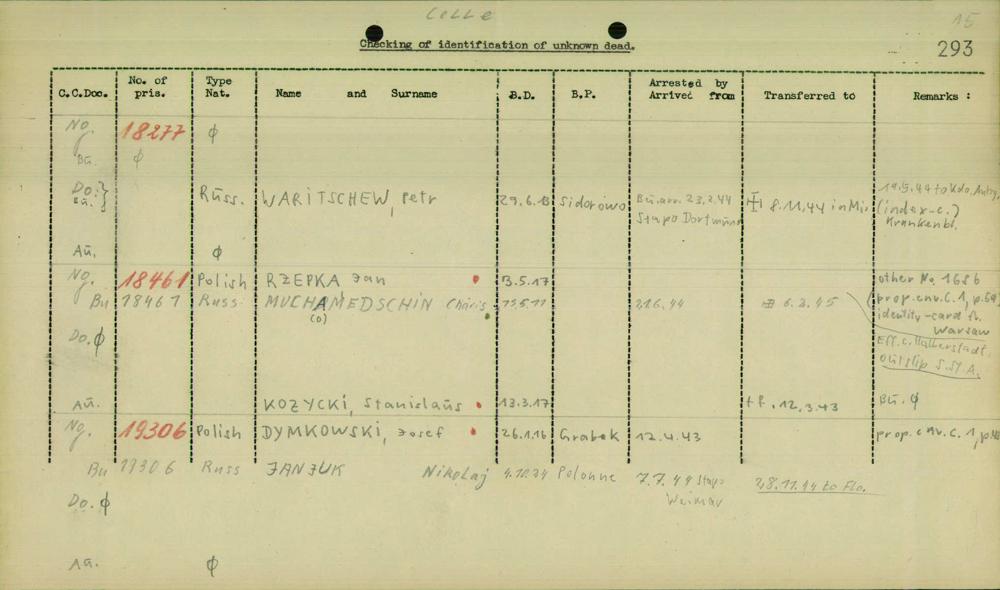 Celle
15
Checking of identification of unknown dead.
293
C.C.Doc. No. of pris. Type Nat. Name and Surname B.D. B.P. Arrested by Arrived from Transferred to Remarks :
Ng. 18277 φ
Bu. φ
Do. } Russ. WARITSCHEW, Petr 29.6.13 Sidorowo Bu. arr. 23.2.44 8.11.44 in
Bu. Stapo Dortmund (index-c.)
Krankenbl.
Au. φ
Ng. 18461 Polish RZEPKA Jan 3.5.17 other No. 1686
Bu 18461 Russ MUCHAMEDSCHIN 21.6.44 6.2.45 (prop.env.C.1, p.69)
(O) identity-card fr.
Warsaw
Do. φ Eff.c. Halberstadt.
S.S.A.
Au. KOZYCKI, Stanislaus 13.3.17 tf. 12.3.43 Bu. φ
Ng. 19306 Polish DYMKOWSKI, Josef 26.1.16 Grabek 12.4.43 prop.env.C.1,
Bu 19306 Russ JANJUK Nikolaj 4.10.24 Polonne 7.7.44 Stapo 28.11.44 to Flo.
Weimar
Do. φ
Au. φ